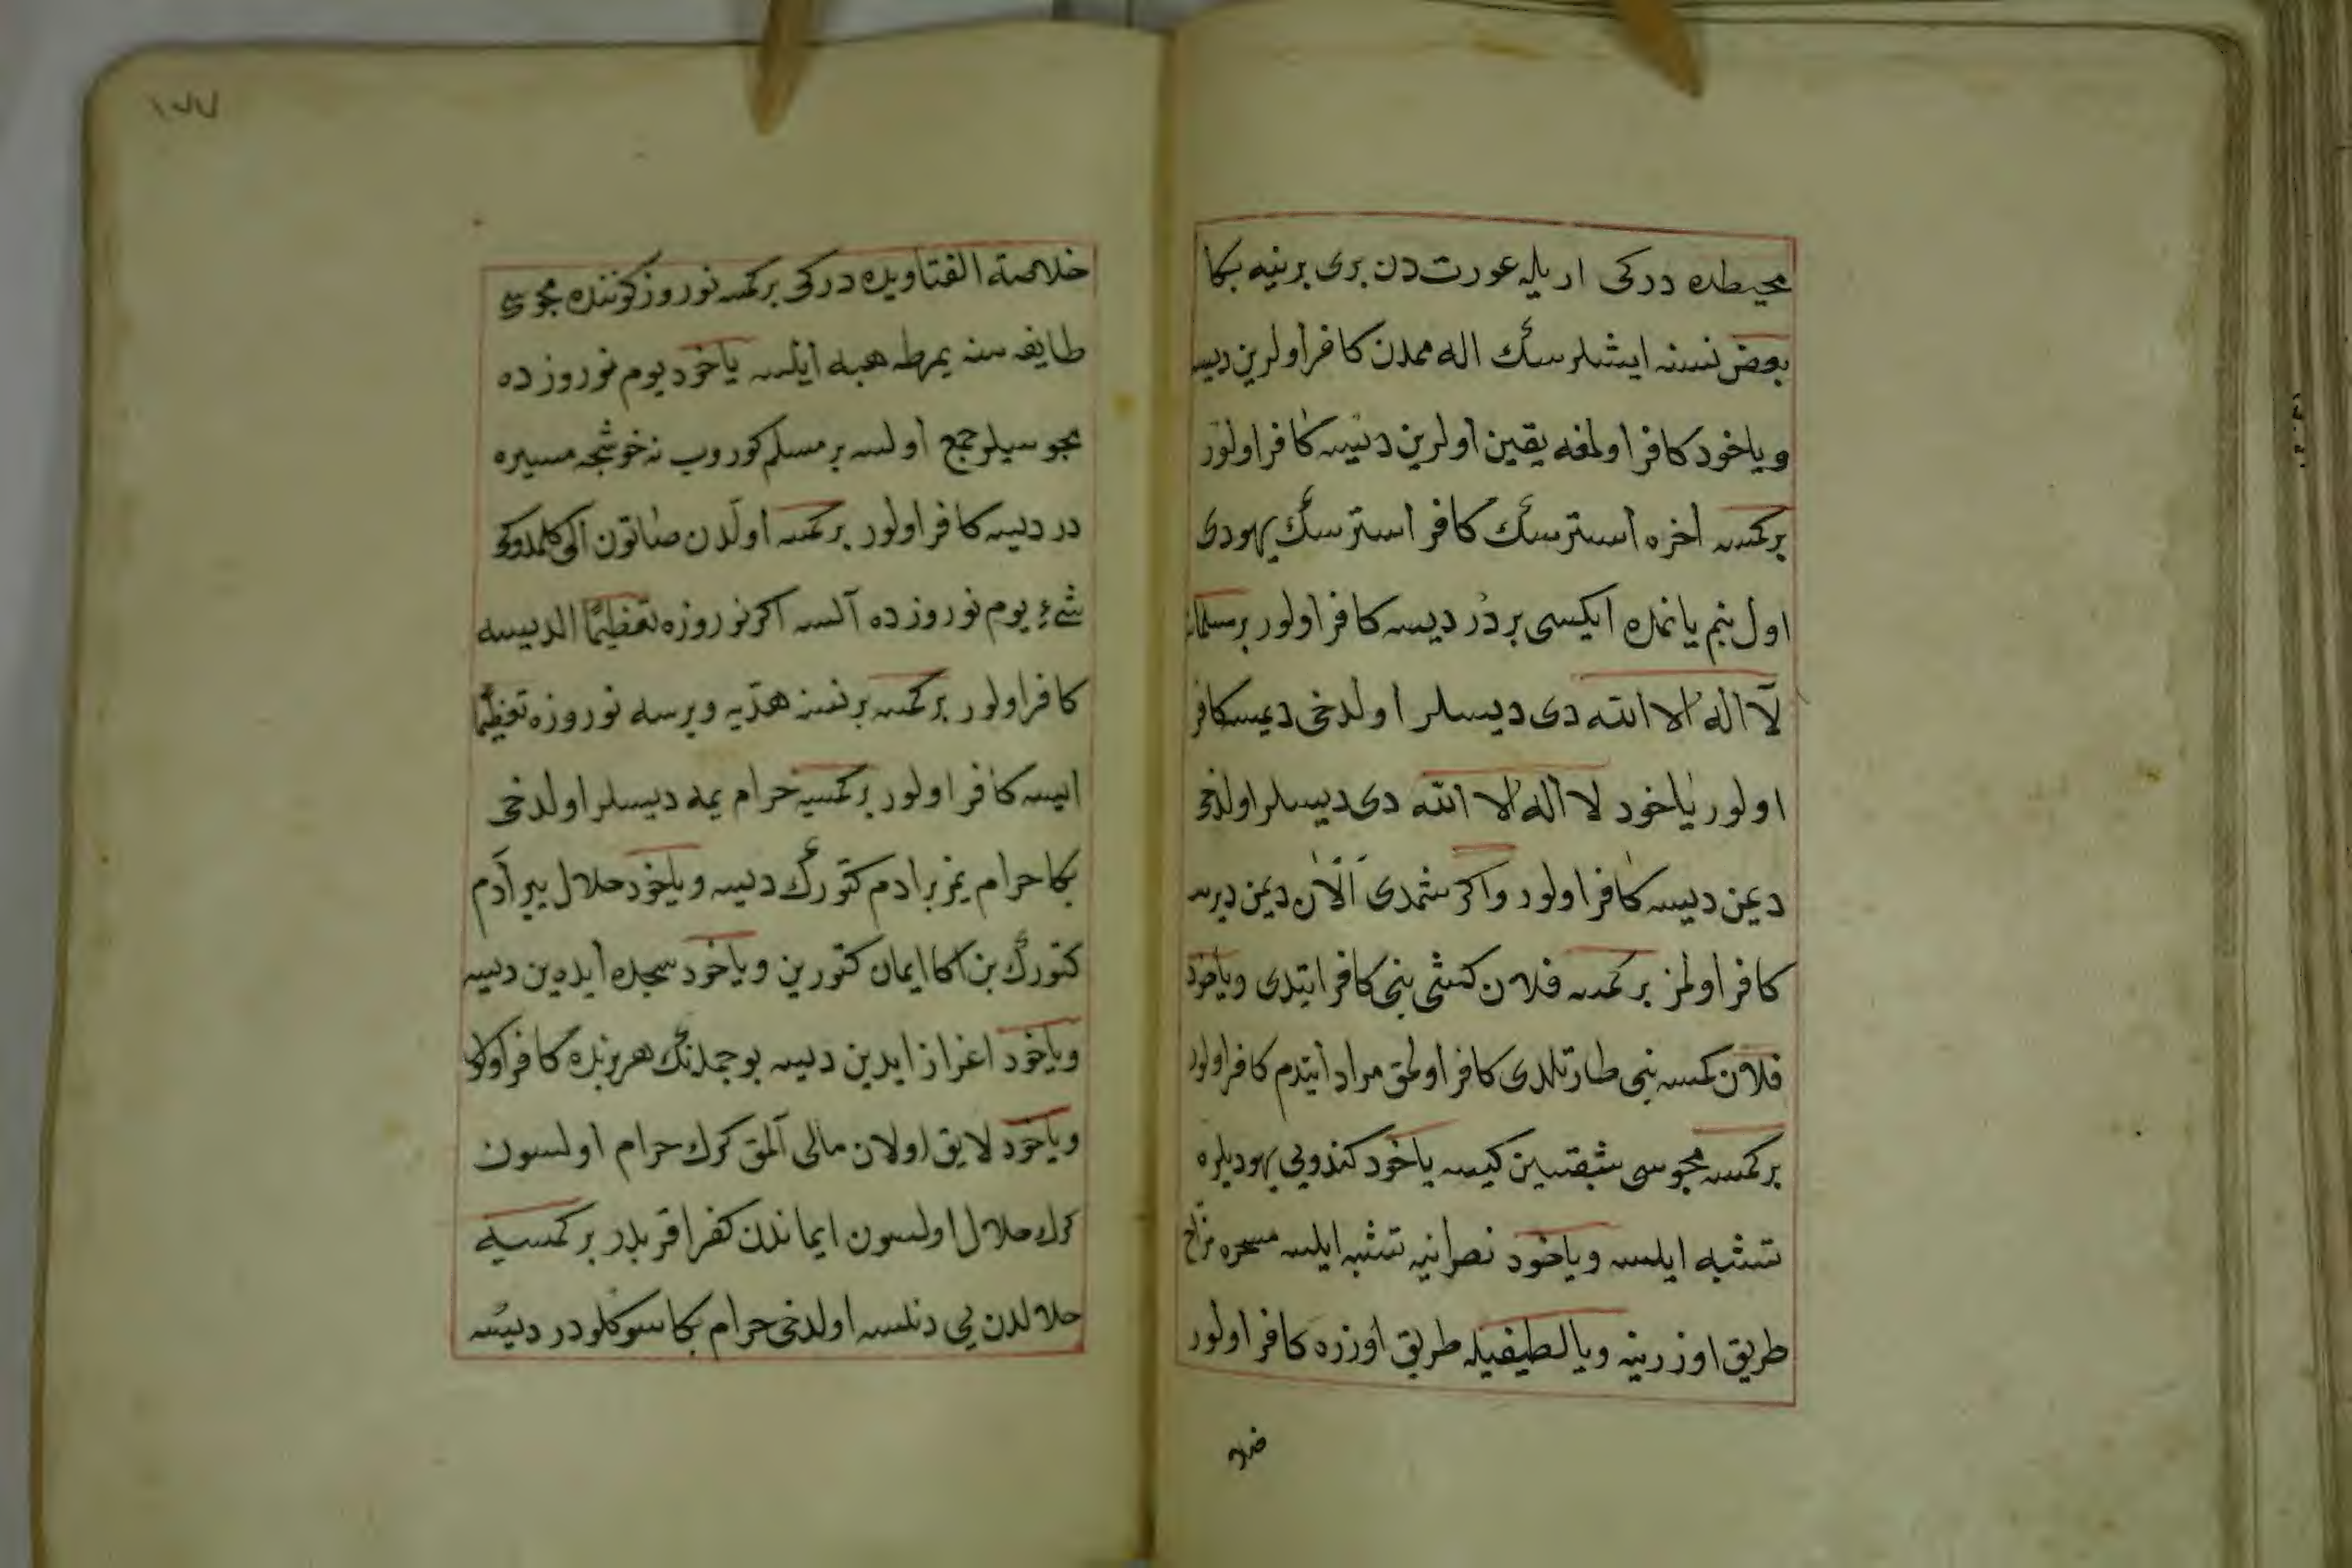 محيطده دركى ار يله عورت دن برى برينه بكا
بعض نسنه ايشلرسك اله ممدن كافر اولرين ديسه
وياخود كافر اولمغه يقين اولرين ديسه كافر اولور
بركمسه اخره استرسك كافر استرسك يهودى
اول بنم يانمده ايكسى بر در ديسه كافر اولور بر مسلمانه
لا اله الا الله دى ديسلر اولدخى ديمسه كافر
اولور ياخود لا اله الا الله دى ديسلر اولدخى
ديمن ديسه كافر اولور واكر شمدى الآن ديمن ديرسه
كافر اولمز بركمسه فلان كشى بنى كافر ايتدى وياخود
فلان كمسه بنى طارتلدى كافر اولمق مراد ايتدم كافر اولور
بركمسه مجوسى شبقسين كيسه ياخود كندويى يهوديلره
تشبه ايلسه وياخود نصرانيه تشبه ايلسه مسخره مزاح
طريق اوزرينه ويا لطيفيله طريق اوزره كافر اولور
خلا
١٧٧
خلاصة الفتاويده دركى بركمسه نوروز كوننده مجوسى
طايفه سنه يمرطه هبه ايلسه ياخود يوم نوروز ده
مجوسيلر جمع اولسه بر مسلم كوروب نه خوشجه مسيره
در ديسه كافر اولور بركمسه اولدن صاتون الى كلمدوكى
شىء يوم نوروز ده آلسه اكر نوروزه تعظيما الديسه
كافر اولور بركمسه بر نسنه هديه ويرسه نوروزه تعظيما
ايسه كافر اولور بركمسيه حرام يمه ديسلر اولدخى
بكا حرام يمز بر ادم كتورك ديسه وياخود حلال يير آدم
كتورك بن اكا ايمان كتورين وياخود سجده ايده ين ديسه
وياخود اعزاز ايدين ديسه بو جمله نك هر برنده كافر اولور
وياخود لايق اولان مالى آلمق كرك حرام اولسون
كرك حلال اولسون ايماندن كفر اقربدر بركمسيه
حلالدن يى دنلسه اولدخى حرام بكا سوكلودر ديسه